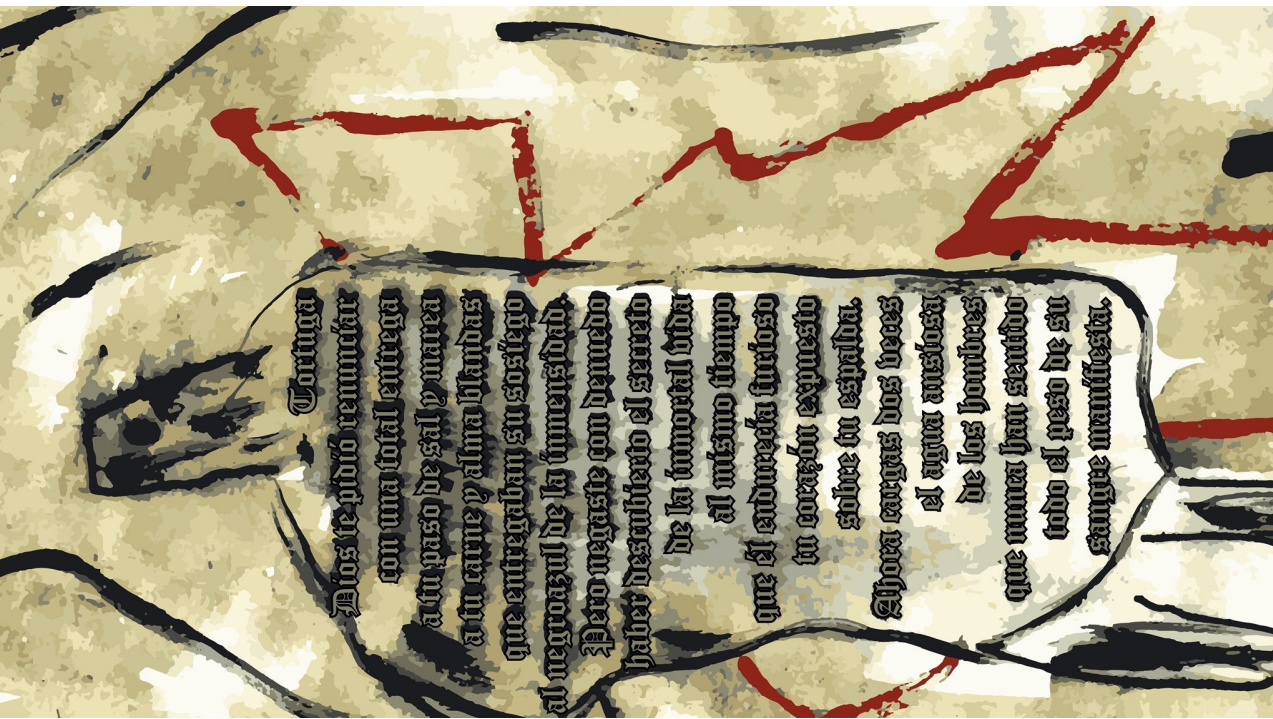 Tortuga
Dios te pidió renunciar
con una total entrega
a tu paso de sal y marea
a tu carne y alma blandas
que entregaban su sosiego
al negroazul de la inmensidad.
Pero negaste con denuedo
haber descubierto el secreto
de la inmortal vida
al mismo tiempo
que él endurecía furioso
tu corazón expuesto
sobre tu espalda.
Ahora cargas dos veces
el agua ansiosa
de los hombres
que nunca han sentido
todo el peso de su
sangre manifiesta.